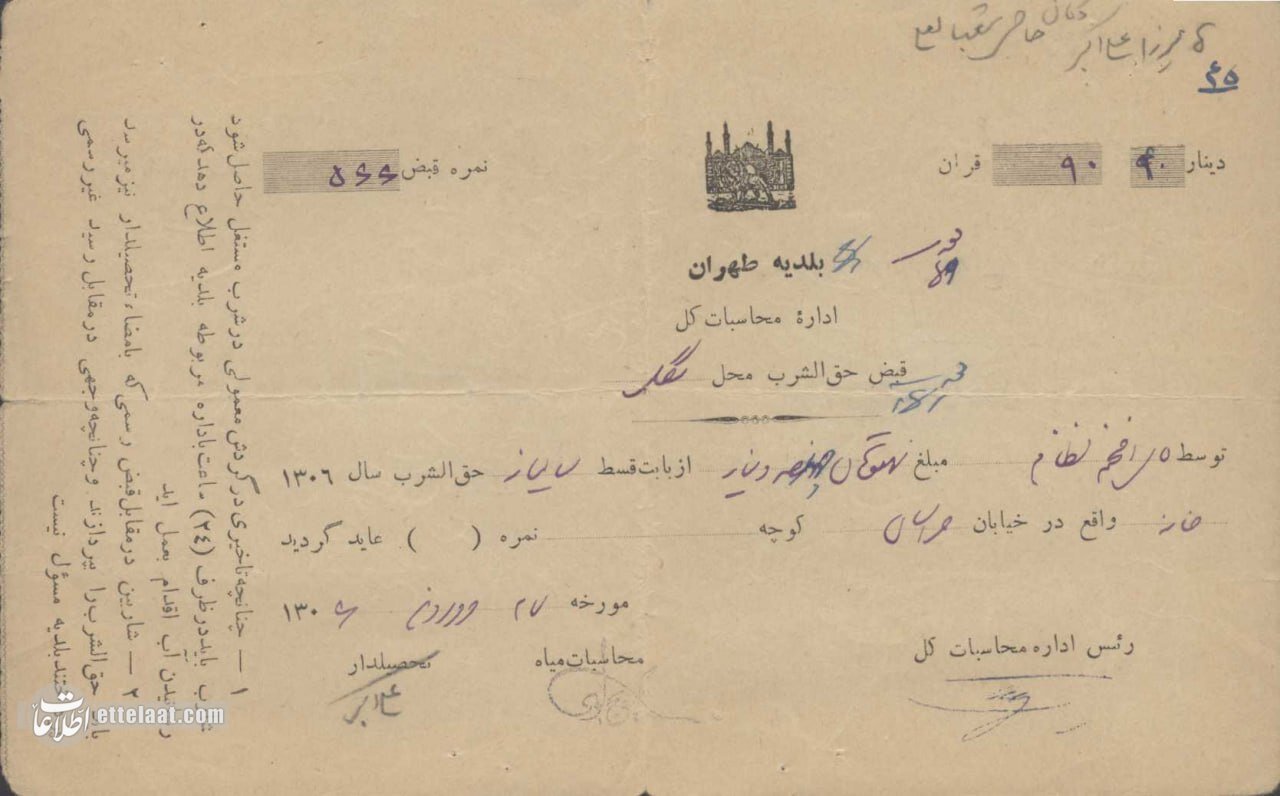 میرزا علی اکبر
٤٥
دینار ۹۰ قران نمره قبض ۵۶۶
بلدیه طهران
ادارهٔ محاسبات کل
قبض حق‌الشرب محل سنگلج
توسط افخم نظام مبلغ دینار از بابت قسط حق‌الشرب سال ۱۳۰٦
خانه واقع در خیابان کوچه نمره ( ) عاید گردید
مورخه فروردین ۱۳۰
رئس اداره محاسبات کل محاسبات میاه تحصیلدار
علی اکبر
۱ — چنانچه تاخیری در گردش معمولی در شرب مستغل حاصل شود
باید در ظرف (۲٤) ساعت باداره مربوطه بلدیه اطلاع دهد که در
رسانیدن آب اقدام بعمل اید
۲ — شاربین در مقابل قبض رسمی که بامضاء تحصیلدار نیز میرسد
باید حق‌الشرب را بپردازند و چنانچه وجهی در مقابل رسید غیر رسمی
بلدیه مسؤل نیست
اطلاعات ettelaat.com